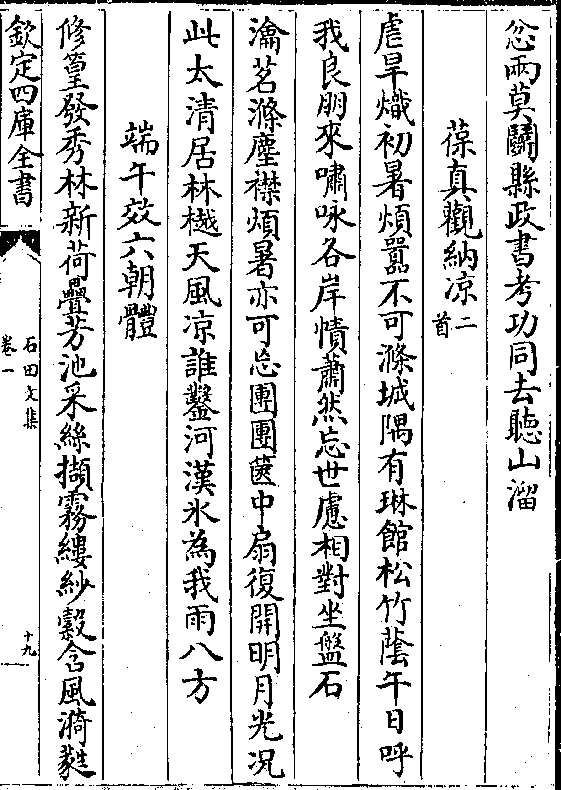 忿兩莫鬭縣政書考功同去聽山溜
葆真觀納凉二首
虐旱熾初暑煩囂不可滌城隅有琳館松竹蔭午日呼
我良朋來嘯咏各岸幘蕭然忘世慮相對坐盤石
瀹茗滌塵襟煩暑亦可忘團團篋中扇復開明月光况
此太清居林樾天風凉誰鑿河漢氷為我雨八方
端午效六朝體
修篁發秀林新荷疊芳池采絲擷霧縷紗縠含風漪蕤
欽定四庫全書
石田文集
卷一
十九